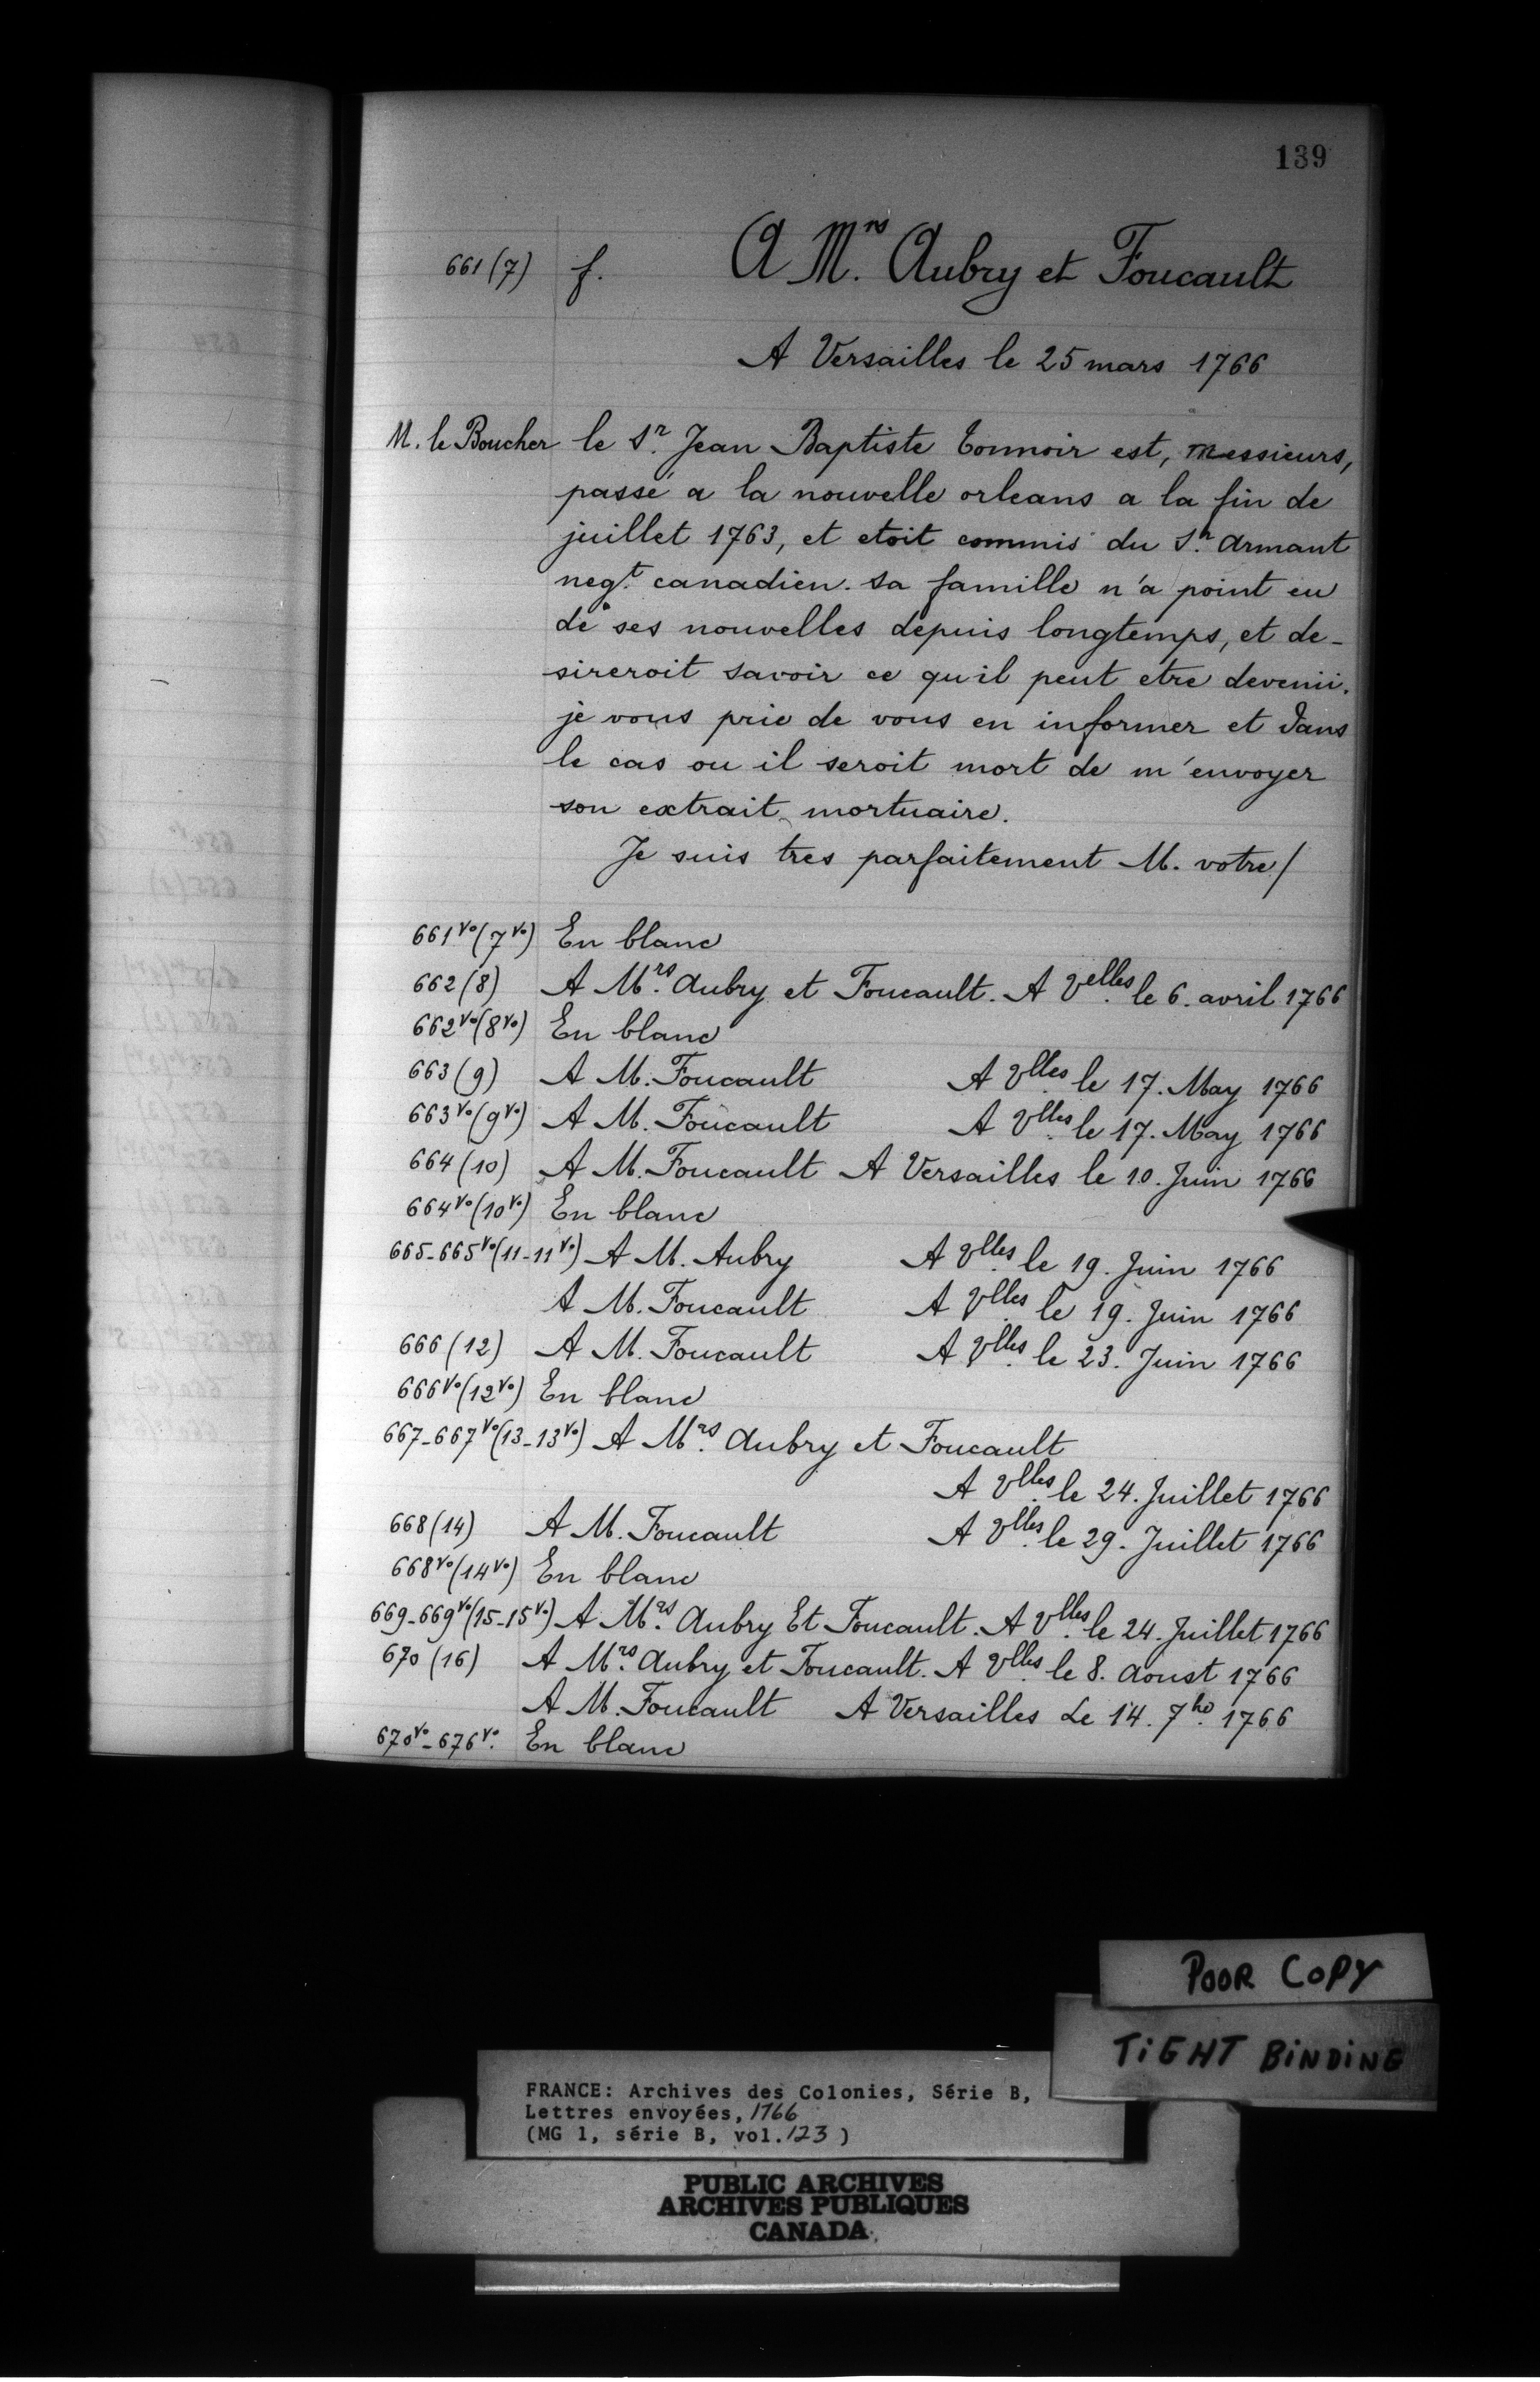 139
661 (7) f. A Mrs. Aubry et Foucault
A Versailles le 25 mars 1766
M. le Boucher le Sr. Jean Baptiste Tonnoir est, Messieurs,
passé a la nouvelle orleans a la fin de
juillet 1763, et etoit commis du Sr. Armant
negt. canadien. sa famille n'a point eu
de ses nouvelles depuis longtemps, et de-
sireroit savoir ce qu il peut etre devenü.
je vous prie de vous en informer et dans
le cas ou il seroit mort de m'envoyer
son extrait mortuaire.
Je suis tres parfaitement M. votre/
661vo (7vo) En blanc
662 (8) A Mrs. Aubry et Foucault. A Velles. le 6. avril 1766
662vo (8vo) En blanc
663 (9) A M. Foucault A Vlles. le 17. May 1766
663vo (9vo) A M. Foucault A Vlles. le 17. May 1766
664 (10) A M. Foucault A Versailles le 10. Juin 1766
664vo (10vo) En blanc
665-665vo (11-11vo) A M. Aubry A Vlles. le 19. Juin 1766
A M. Foucault A Vlles. le 19. Juin 1766
666 (12) A M. Foucault A Vlles. le 23. Juin 1766
666vo (12vo) En blanc
667-667vo (13-13vo) A Mrs. Aubry et Foucault
A Vlles. le 24. Juillet 1766
668 (14) A M. Foucault A Vlles. le 29. Juillet 1766
668vo (14vo) En blanc
669-669vo (15-15vo) A Mrs. Aubry Et Foucault. A Vlles. le 24. Juillet 1766
670 (16) A Mrs. Aubry et Foucault. A Vlles. le 8. Aoust 1766
A M. Foucault A Versailles Le 14. 7bre. 1766
670vo-676vo. En blanc
POOR COPY
TIGHT BINDING
FRANCE: Archives des Colonies, Série B,
Lettres envoyées, 1766
(MG 1, série B, vol. 123 )
PUBLIC ARCHIVES
ARCHIVES PUBLIQUES
CANADA